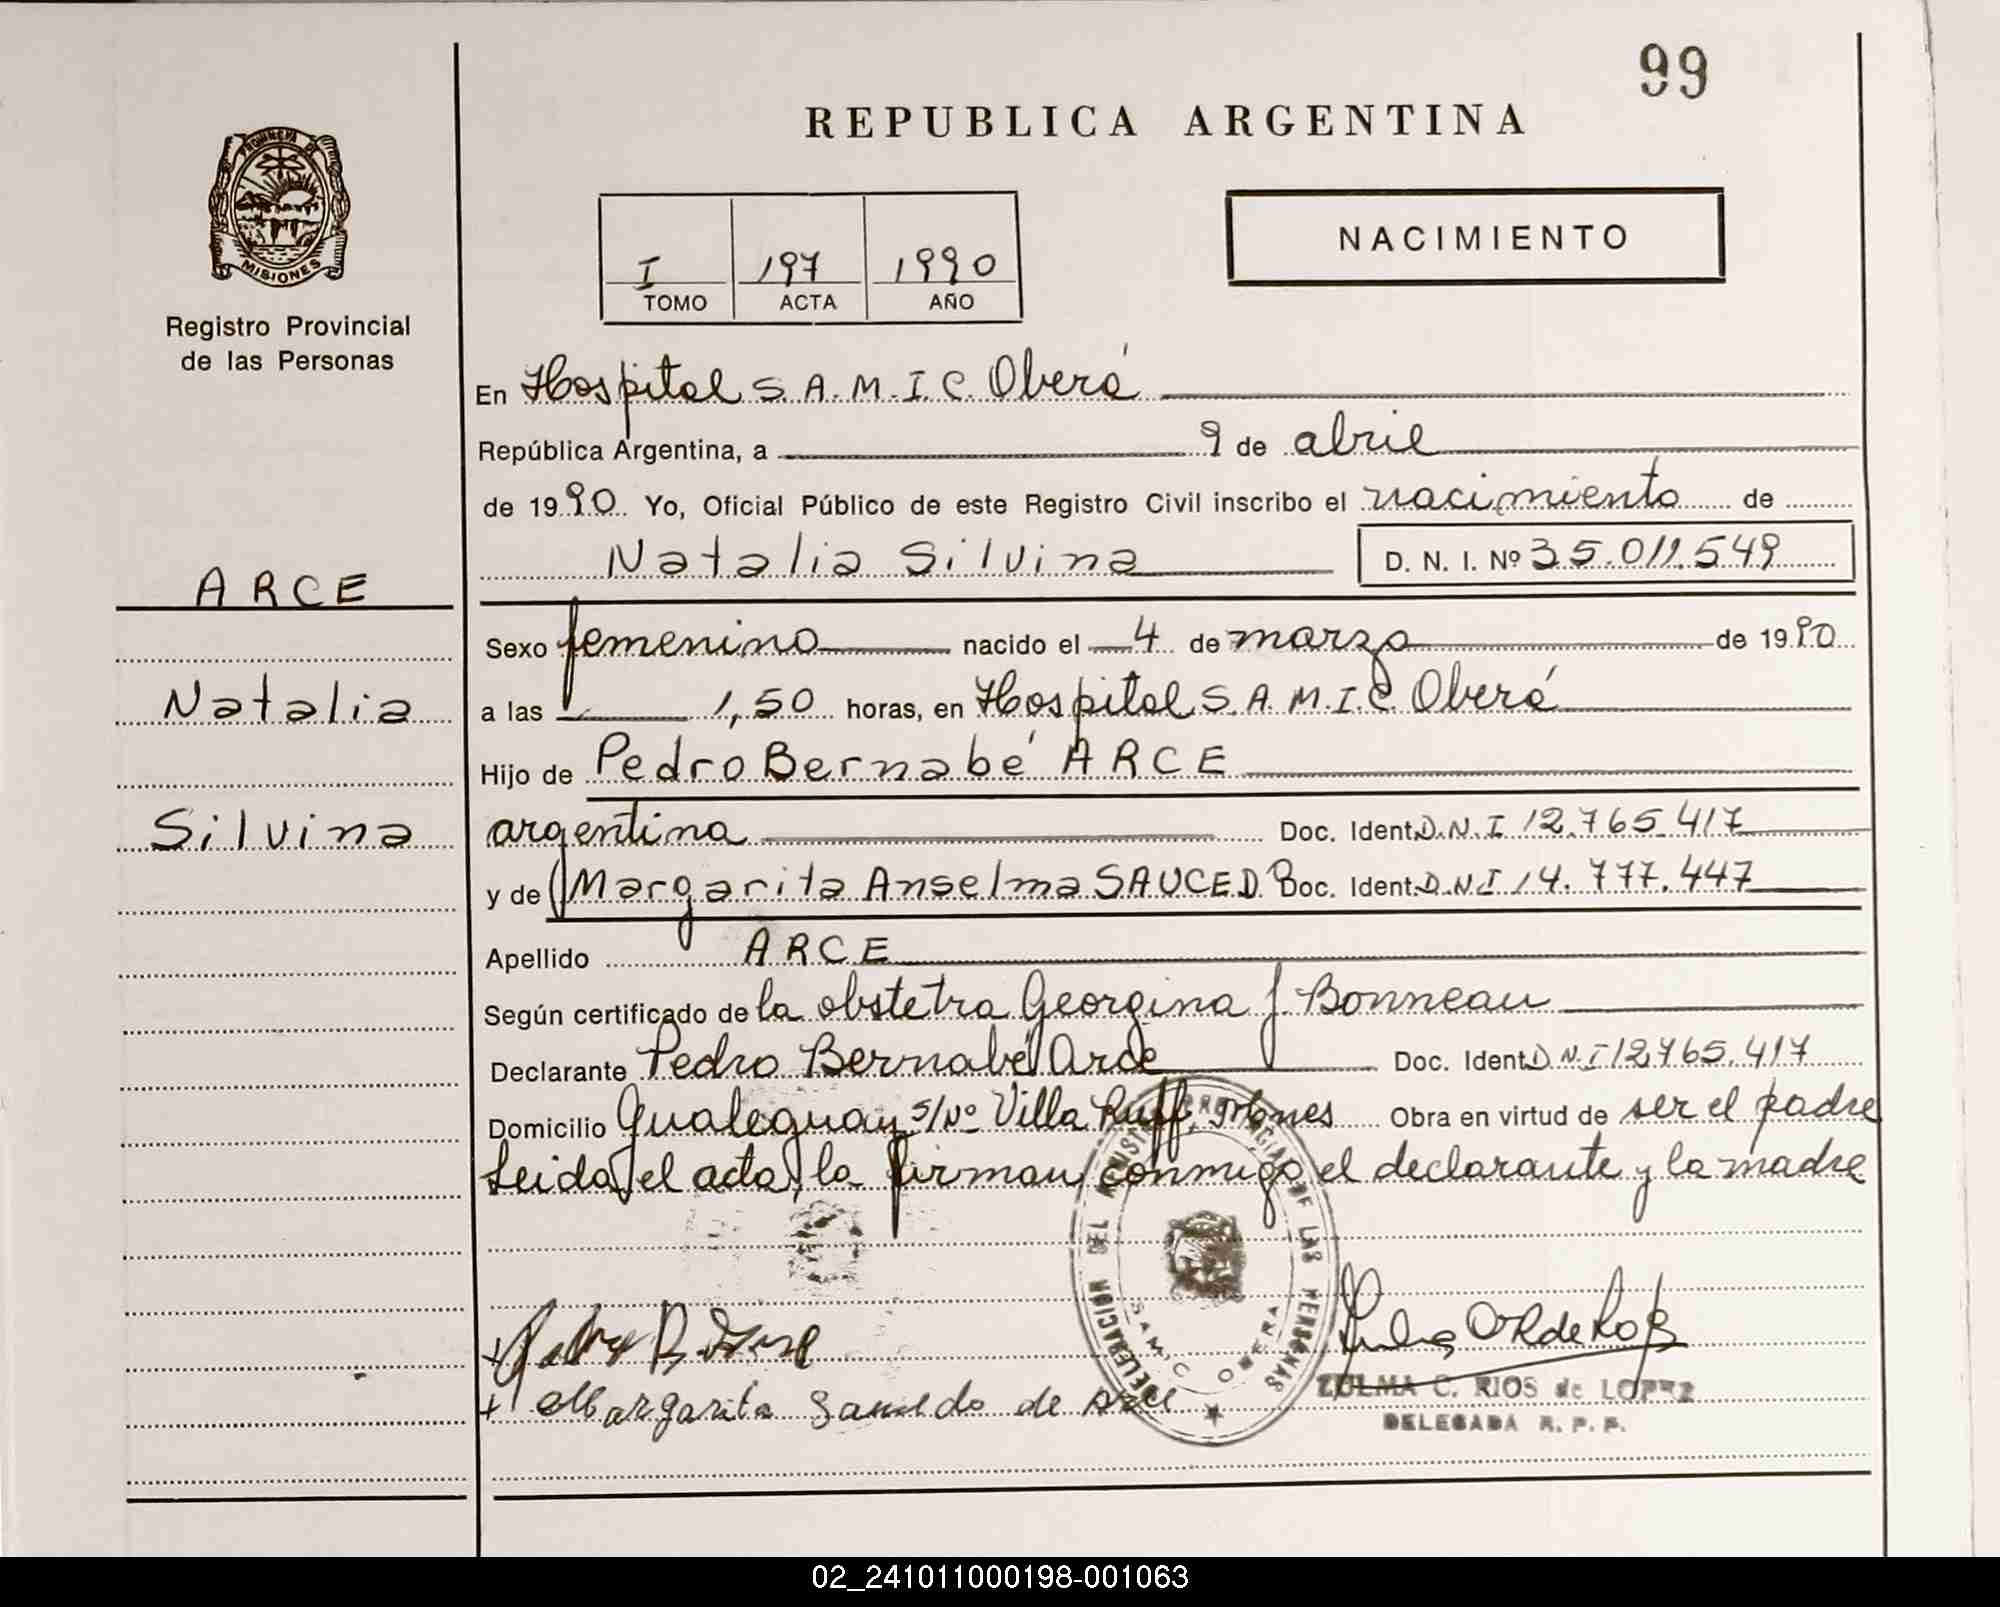 99
REPUBLICA ARGENTINA
PROVINCIA DE
MISIONES
Registro Provincial
de las Personas
I 197 1990
TOMO ACTA AÑO
NACIMIENTO
En Hospital S.A.M.I.C. Oberá
República Argentina, a 9 de abril
de 1990 Yo, Oficial Público de este Registro Civil inscribo el nacimiento de
Natalia Silvina D. N. I. Nº 35.011.549
ARCE
Natalia
Silvina
Sexo femenino nacido el 4 de marzo de 1990
a las 1,50 horas, en Hospital S.A.M.I.C Oberá
Hijo de Pedro Bernabé ARCE
argentina Doc. Ident. D.N.I 12.765.417
y de Margarita Anselma SAUCEDO Doc. Ident. D.N.I 14.777.447
Apellido ARCE
Según certificado de la obstetra Georgina J. Bonneau
Declarante Pedro Bernabé Arce Doc. Ident. D.N.I 12.765.417
Domicilio Gualeguay s/Nº Villa Ruff, Mnes Obra en virtud de ser el padre
Leida el acta, la firman conmigo el declarante y la madre
DELEGACION DEL REGISTRO PROVINCIAL DE LAS PERSONAS
SAMIC OBERA
+ Margarita Saucedo de Arce
ZULMA C. RIOS de LOPEZ
DELEGADA R. P. P.
02_241011000198-001063